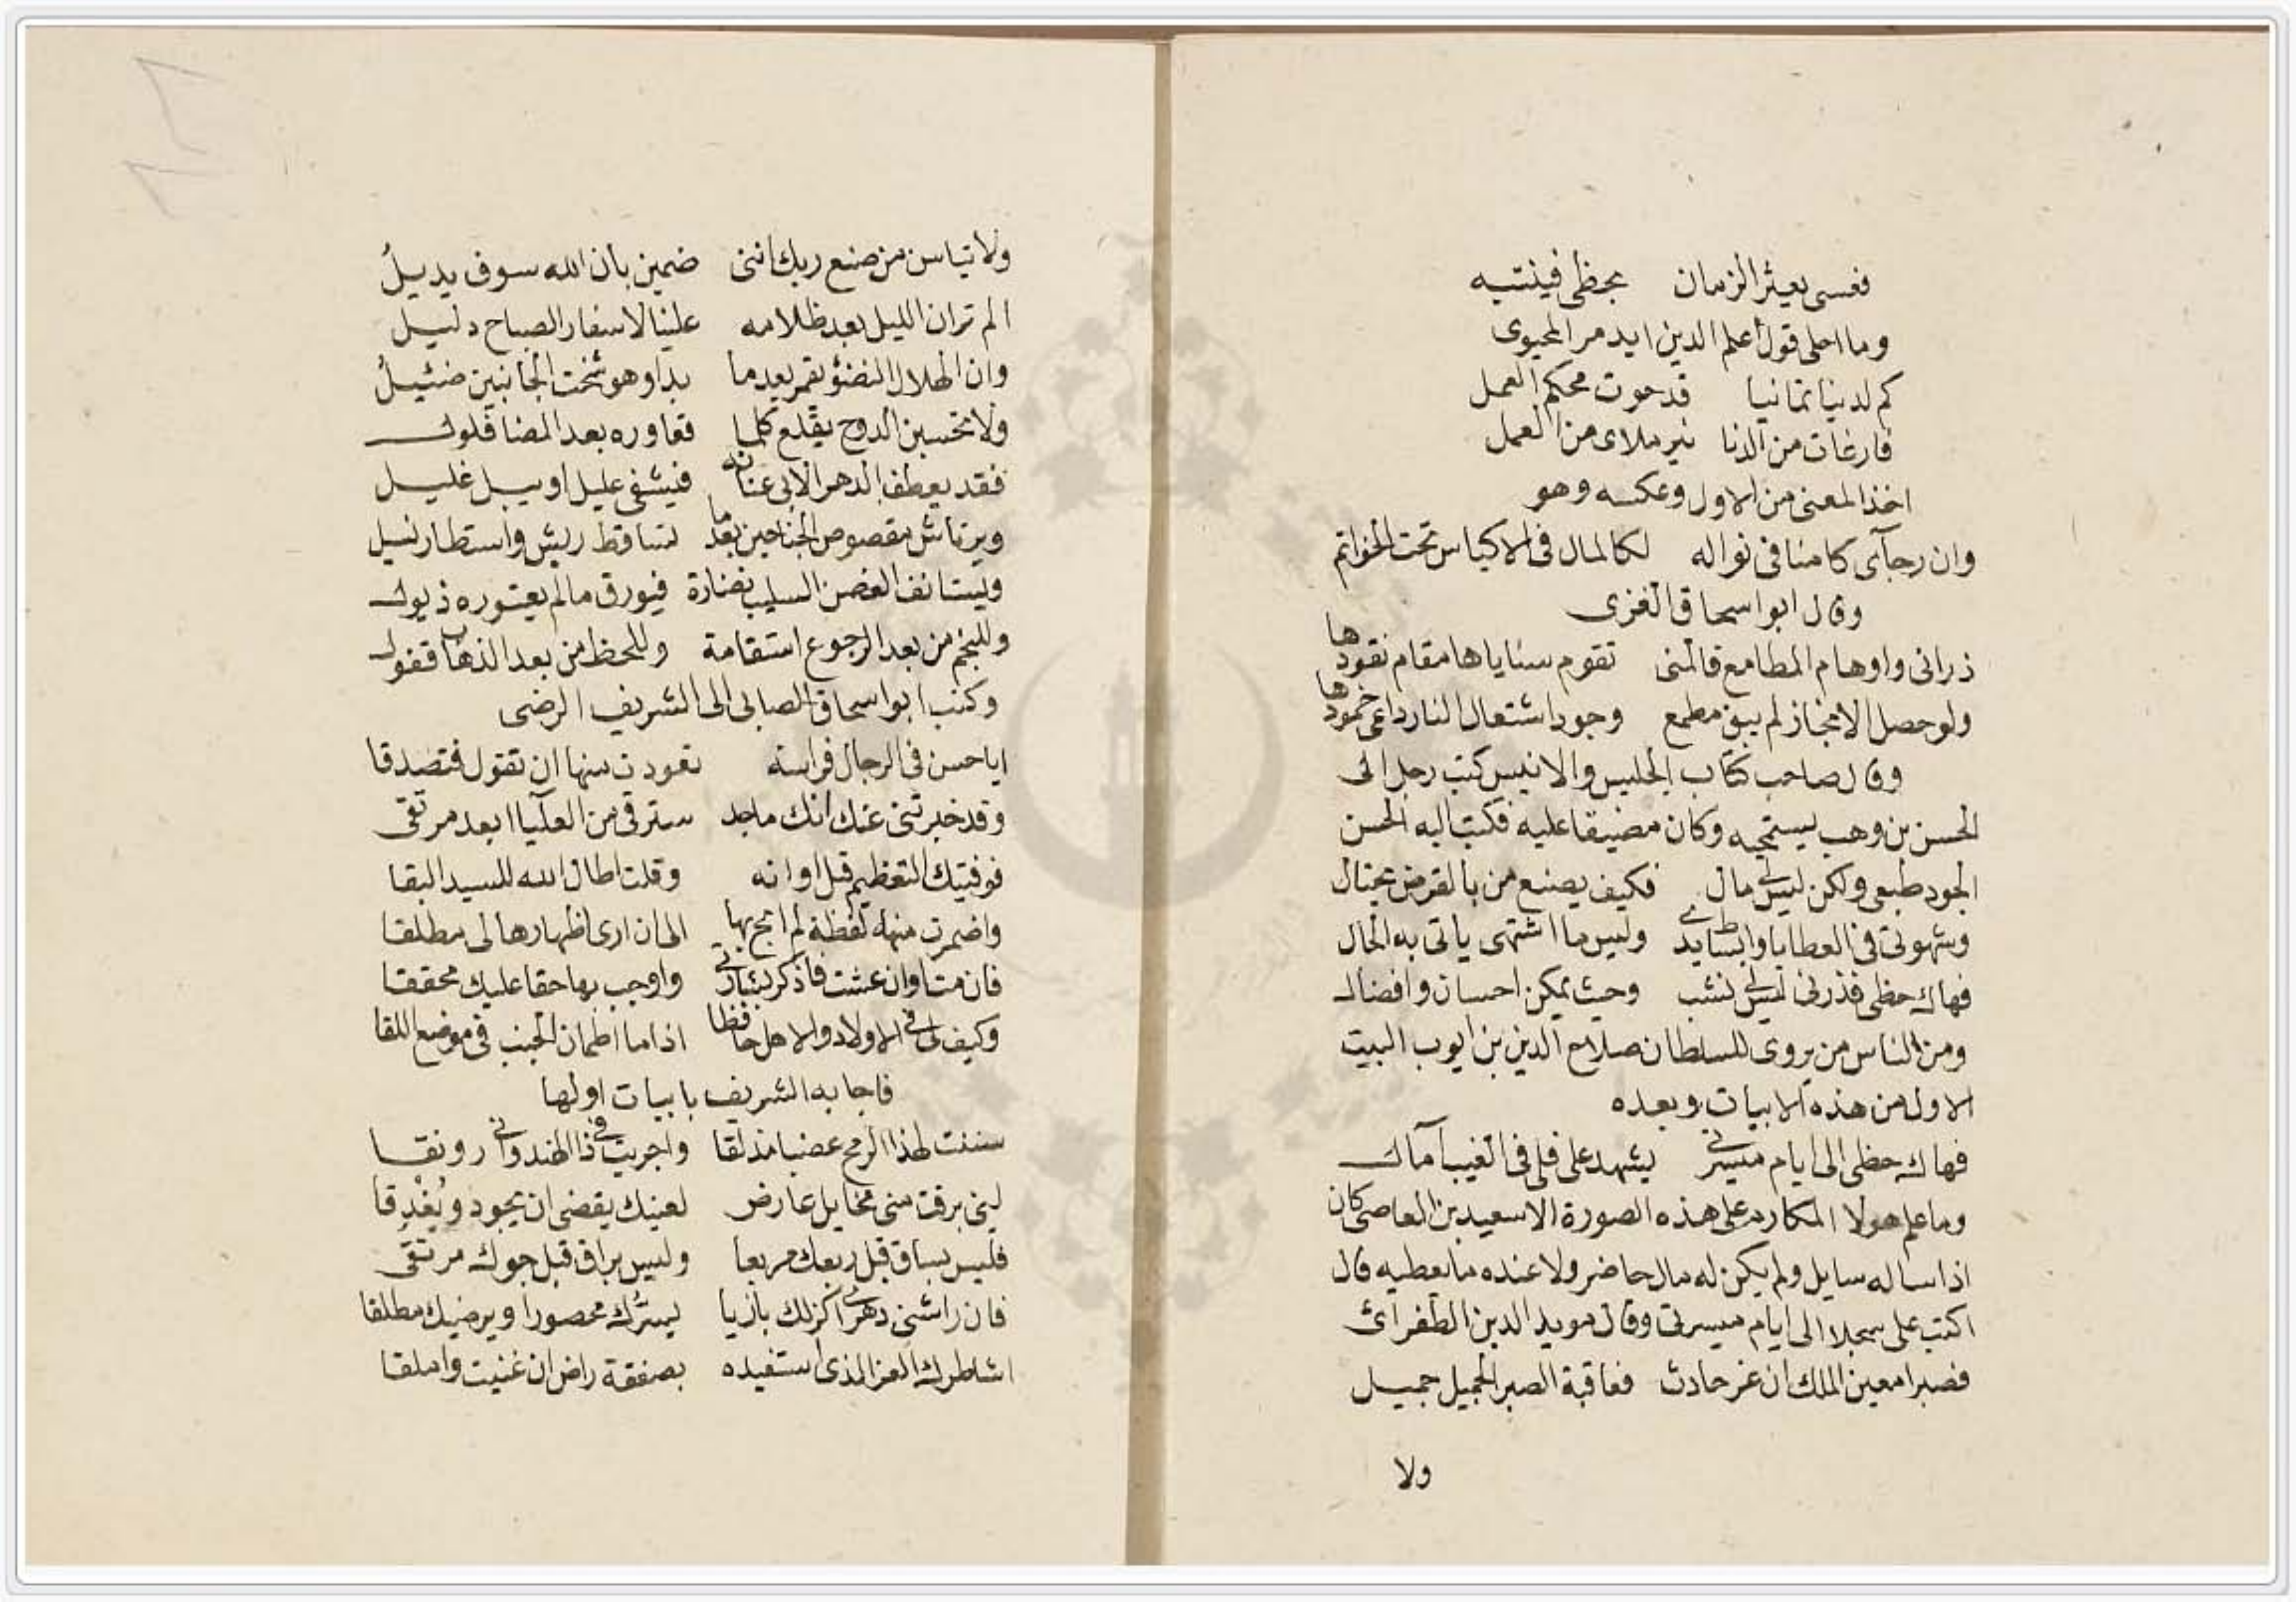 فعسى يعثر الزمان بحظى فينتبه
وما احلى قول علم الدين ايدمر المحيوى
كم لدينا تمانيا قد حوت محكم العمل
فارغات من الدنا نير ملاى من العمل
اخذ المعنى من الاول وعكسه وهو
وان رجآى كامنا فى نواله لكالمال فى الاكياس تحت الخواتم
وقال ابو اسحاق الغزى
ذرانى واوهام المطامع فالمنى تقوم سنايا ها مقام نقودها
ولو حصل الانجاز لم يبق مطمع وجود اشتعال النار داعى خمودها
وقال صاحب كتاب الجليس والانيس كتب رجل الى
الحسن بن وهب يستميحه وكان مضيقا عليه فكتب اليه الحسن
الجود طبعى ولكن ليس لى مال فكيف يصنع من بالقرض يحتال
وشهوتى فى العطايا وابساطى يد وليس ما اشتهى ياتى به الحال
فهاك حظى فذرنى ليس لى نشب وحيث يمكن احسان وافضال
ومن الناس من يروى للسلطان صلاح الدين بن ايوب البيت
الاول من هذه الابيات وبعده
فهاك حظى الى ايام ميسرتى يشهد على فلى فى الغيب آمال
وما علم هولا المكارم على هذه الصورة الا سعيد بن العاصى كان
اذا ساله سايل ولم يكن له مال حاضر ولا عنده ما يعطيه قال
اكتب على سجلا الى ايام ميسرتى وقال مويد الدين الطغرائ
فصبرا معين الملك ان عز حادث فعاقبة الصبر الجميل جميل
ولا
ولا تياسن من صنع ربك اننى ضمين بان الله سوف يديلُ
الم تر ان الليل بعد ظلامه علينا لاسفار الصباح دليل
وان الهلال النضو يقمر بعدما بدا وهو شخت الجانبين ضئيلُ
ولا تحسبن الدوح يقلع كلما فعاوره بعد المضا قلول
فقد يعطف الدهر الابى عنانه فيشفى عليل او يبل غليل
ويرتاش مقصوص الجناحين بعد ما تساقط ريش واستطار نسيل
ويستانف الغصن السليب نضارة فيورق ما لم يعتوره ذبول
وللنجم من بعد الرجوع استقامة وللحظ من بعد الذهاب قفول
وكتب ابو اسحاق الصابى الى الشريف الرضى
ايا حسن فى الرجال فراسة تعودت منها ان تقول فتصدقا
وقد خبرتنى عنك انك ماجد سترقى من العليآ ابعد مرتقى
فوفيتك التعظيم قبل اوانه وقلت اطال الله للسيد البقا
واضمرت منها لفظة لم ابح بها الى ان ارى اظهارها لى مطلقا
فان مت او ان عشت فاذكر بشارتى واوجب بها حقا عليك محققا
وكيف لى فى الاولاد والاهل حافظا اذا ما اطمان الجنب فى موضع اللقا
فاجابه الشريف بابيات اولها
سننت لهذا الرمح عضبا مذلقا واجريت فى ذا الهندوانى رونقا
لئى برقت منى مخايل عارض لعينك يقضى ان يجود ويُغْدِقا
فليس بساق قبل ربعك مربعا وليس براق قبل جوك مرتقى
فان راشنى دهرى اكن لك بازيا يسرُّك محصورا ويرضيك مطلقا
اشاطرك العز الذى استفيده بصفقة راض ان غنيت واملقا